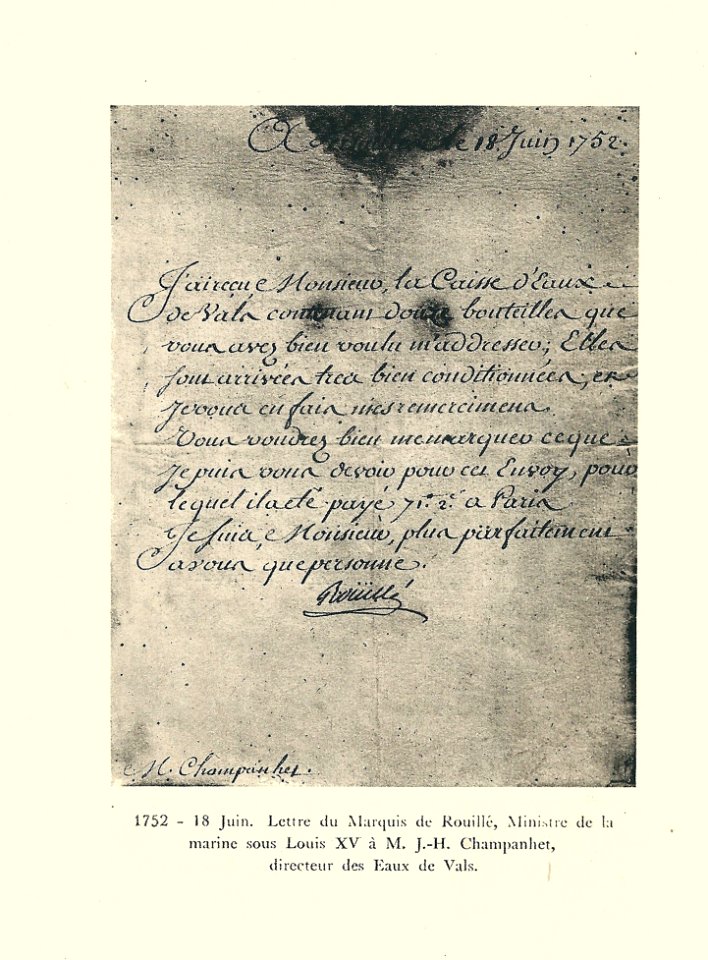 A Versailles le 18 Juin 1752.
J'ai reçu Monsieur, la Caisse d'Eaux
de Vals contenant douze bouteilles que
vous avez bien voulu m'addresser; Elles
sont arrivées tres bien conditionnées, et
Je vous en fais mes remercimens.
Vous voudrez bien me marquer ce que
Je puis vous devoir pour cet Envoy, pour
lequel il a eté payé 7# 2s a Paris
Je suis, Monsieur, plus parfaitement
a vous, que personne.
Roüillé
M. Champanhet.
1752 - 18 Juin. Lettre du Marquis de Rouillé, Ministre de la
marine sous Louis XV à M. J.-H. Champanhet,
directeur des Eaux de Vals.